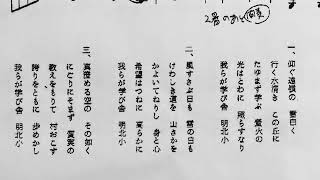 2番のあと間奏
一、仰ぐ遠嶺の 雪白く
行く水清き この丘に
たゆまず学ぶ 螢火の
光はとわに 照らすなり
我らが学び舎 明北小
二、風すさぶ日も 雪の日も
けわしき道を 山さかを
かよいてねりし 身と心
希望はつねに 高らかに
我らが学び舎 明北小
三、真澄める空の その如く
にごりにそまず 質実の
教えをもりて 村おこす
誇りをともに 歩めかし
我らが学び舎 明北小